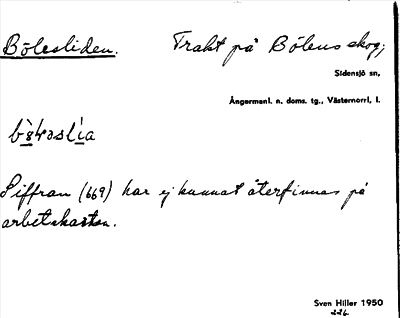 Bölesliden. Trakt på Bölens skog;
Sidensjö sn,
Ångermanl. n. doms. tg., Västernorrl, l.
Siffran (669) har ej kunnat återfinnas på
arbetskartan.
Sven Hiller 1950
226.